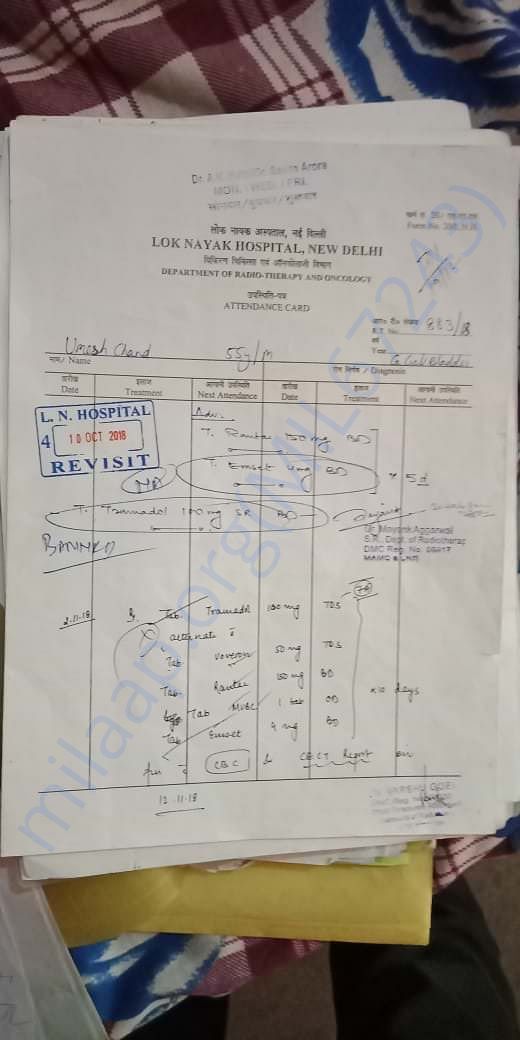 Arora
लोक नायक अस्पताल, नई दिल्ली
LOK NAYAK HOSPITAL, NEW DELHI
विकिरण चिकित्सा एवं ऑनकोलोजी विभाग
DEPARTMENT OF RADIO-THERAPY AND ONCOLOGY
उपस्थिति-पत्र
ATTENDANCE CARD
R.T. No. 883/18
वर्ष
Year
नाम / Name Umesh Chand 55y/M
रोग निर्णय / Diagnosis Ca Gall Bladder
तारीख इलाज आगामी उपस्थिति तारीख इलाज आगामी उपस्थिति
Date Treatment Next Attendance Date Treatment Next Attendance
L. N. HOSPITAL
4 10 OCT 2018
REVISIT
Adv.
T. Rantac 150 mg BD
T. Emset 4mg BD x 5d
T. Tramadol 100 mg SR BD
Dr. Mayank Aggarwal
S.R., Dept. of Radiotherapy
DMC Reg. No.
2.11.18 Tab. Tramadol 100 mg TDS
alternate
Tab Voveron 50 mg TDS
Tab Rantac 150 mg BD
Tab MVBC 1 tab OD x 10 days
Tab Emset 4 mg BD
CBC & CECT Report
12.11.18
milaap.org(MIL67243)